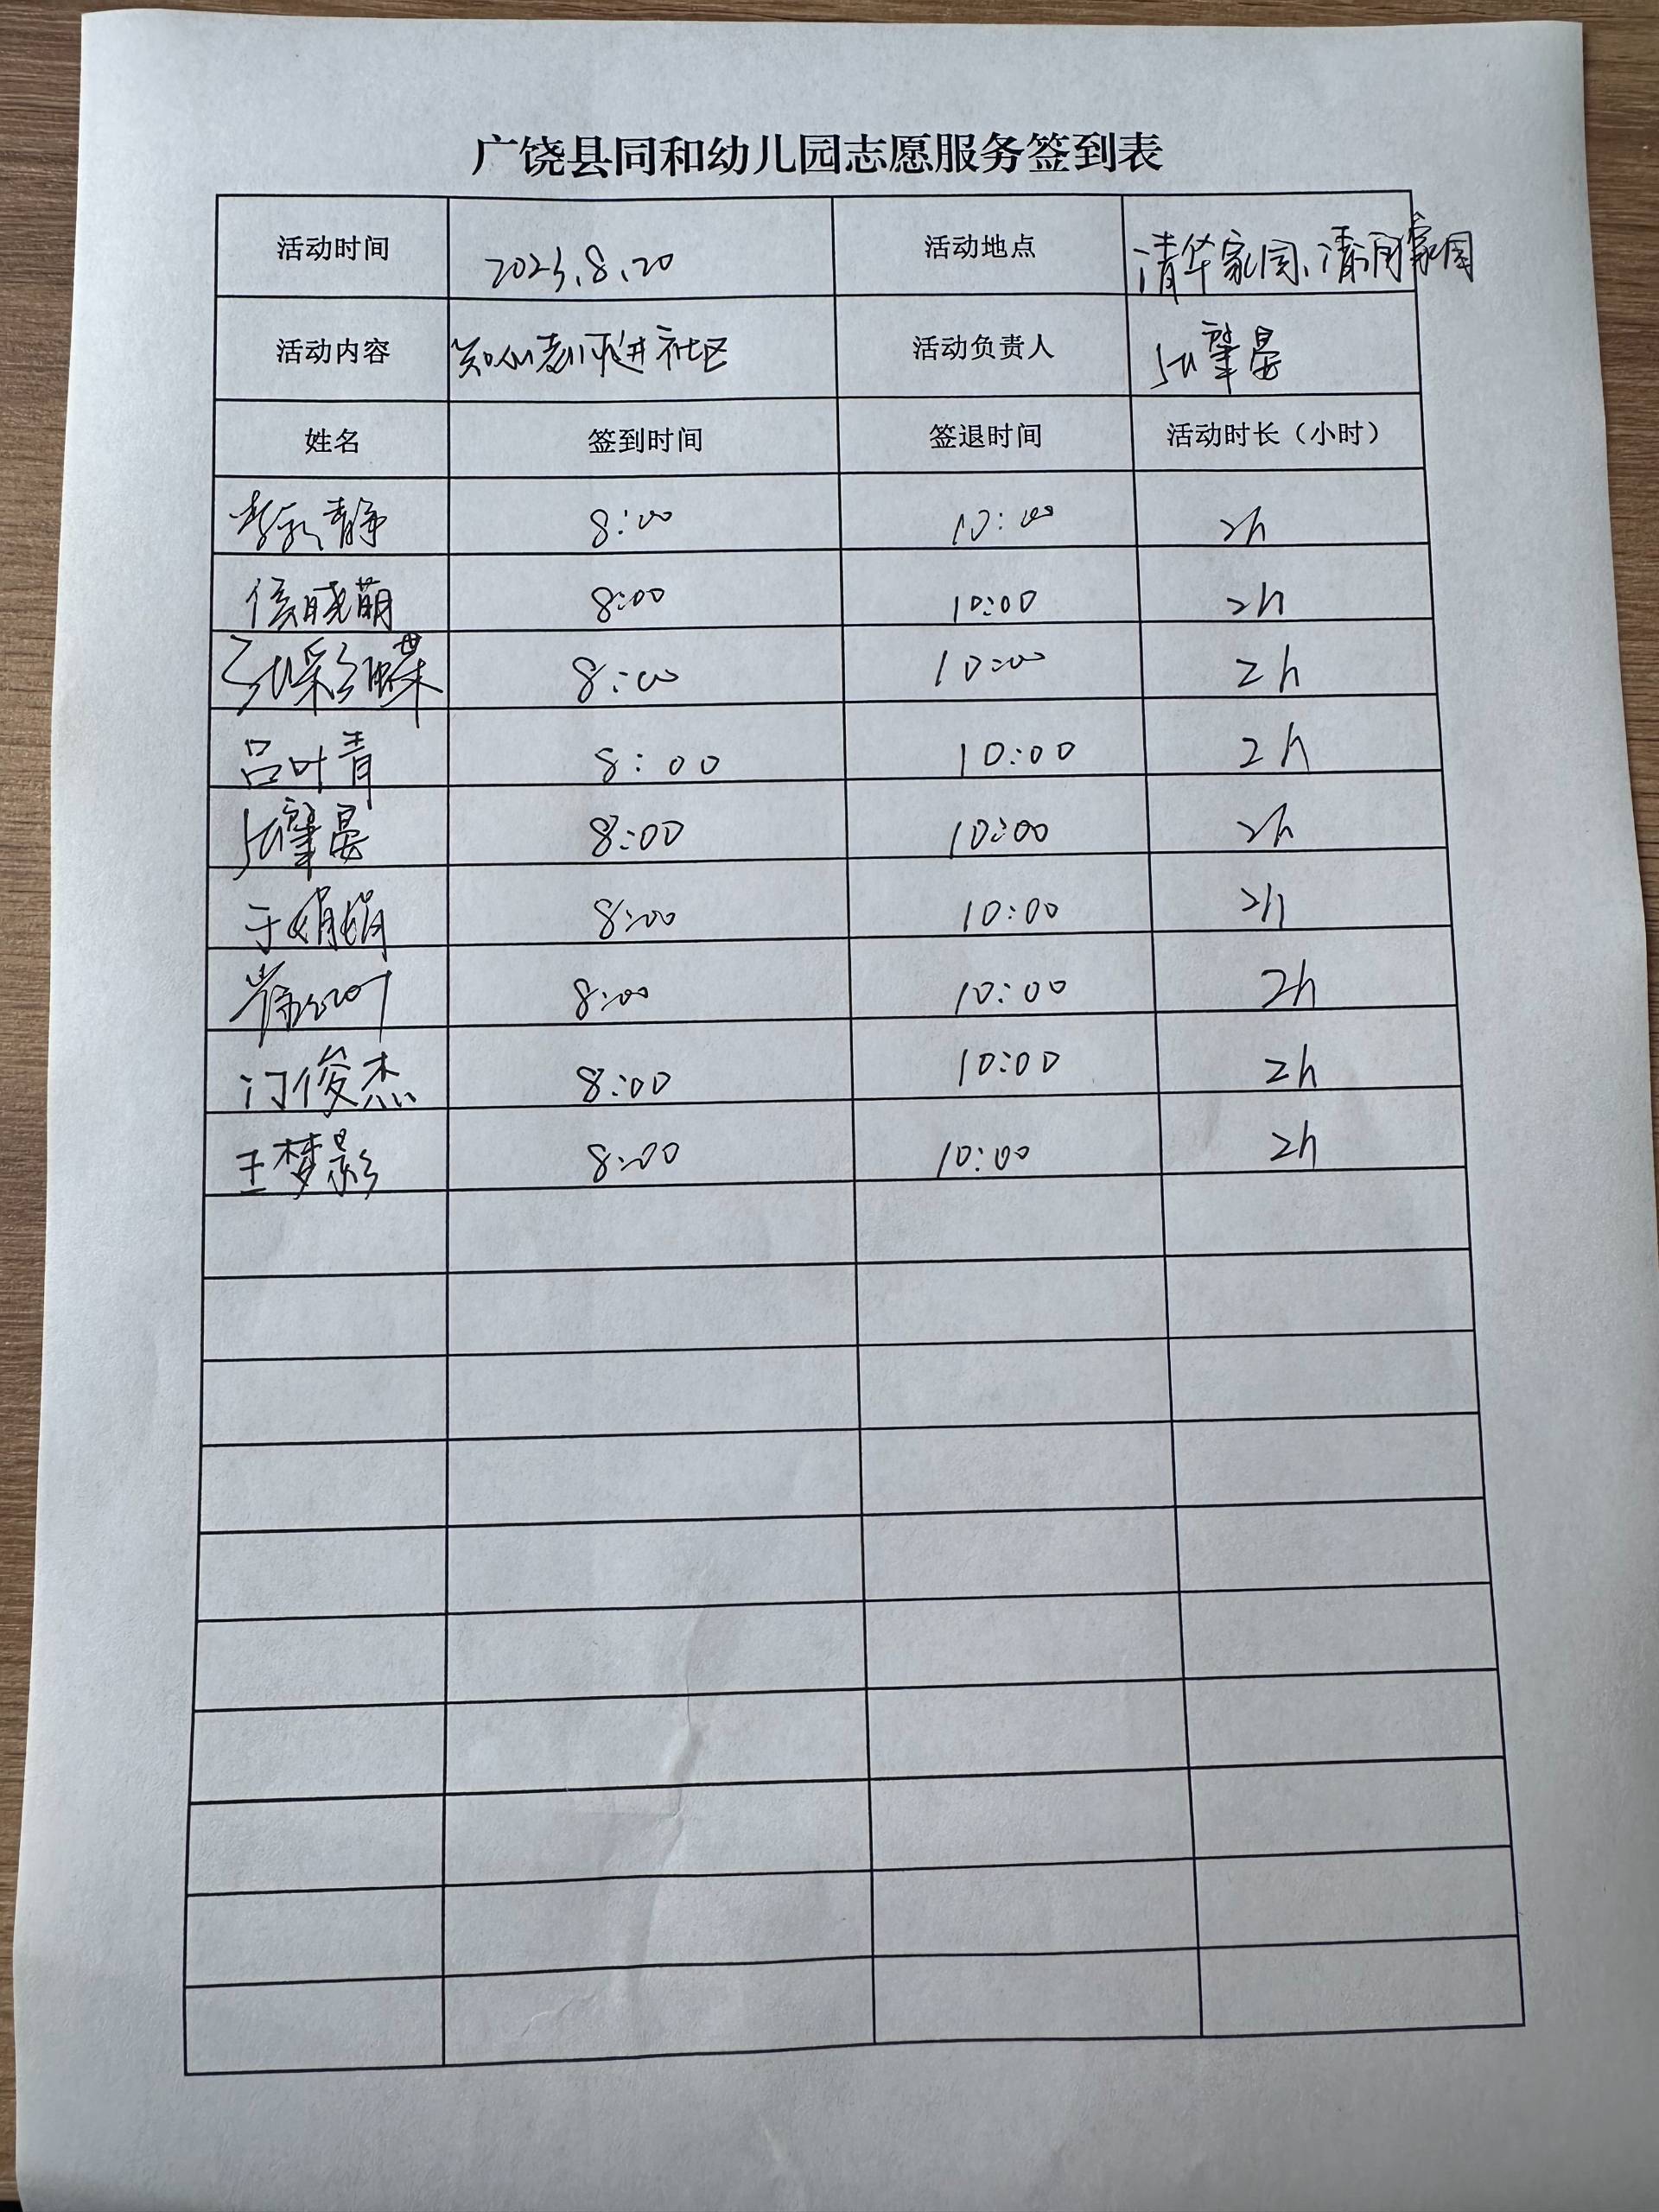 广饶县同和幼儿园志愿服务签到表
活动时间 2023.8.20 活动地点 清华家园、清河家园
活动内容 知心老师进社区 活动负责人 张肇晏
姓名 签到时间 签退时间 活动时长（小时）
静 8:00 10:00 2h
侯晓萌 8:00 10:00 2h
张彩蝶 8:00 10:00 2h
吕叶青 8:00 10:00 2h
张肇晏 8:00 10:00 2h
于娟娟 8:00 10:00 2h
8:00 10:00 2h
门俊杰 8:00 10:00 2h
王梦影 8:00 10:00 2h